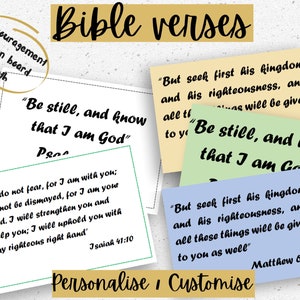 Bible verses
"Be still, and know
that I am God"
do not fear, for I am with you;
not be dismayed, for I am your
I will strengthen you and
you; I will uphold you with
righteous right hand'
Isaiah 41:10
"But seek first his kingdom
and his righteousness, and
all these things will be given
to you as well"
"Be still, and k
that I am G
Psa
"But seek first his kingdom
and his righteousness, and
all these things will be given
to you as well"
Matthew 6
Personalise / Customise